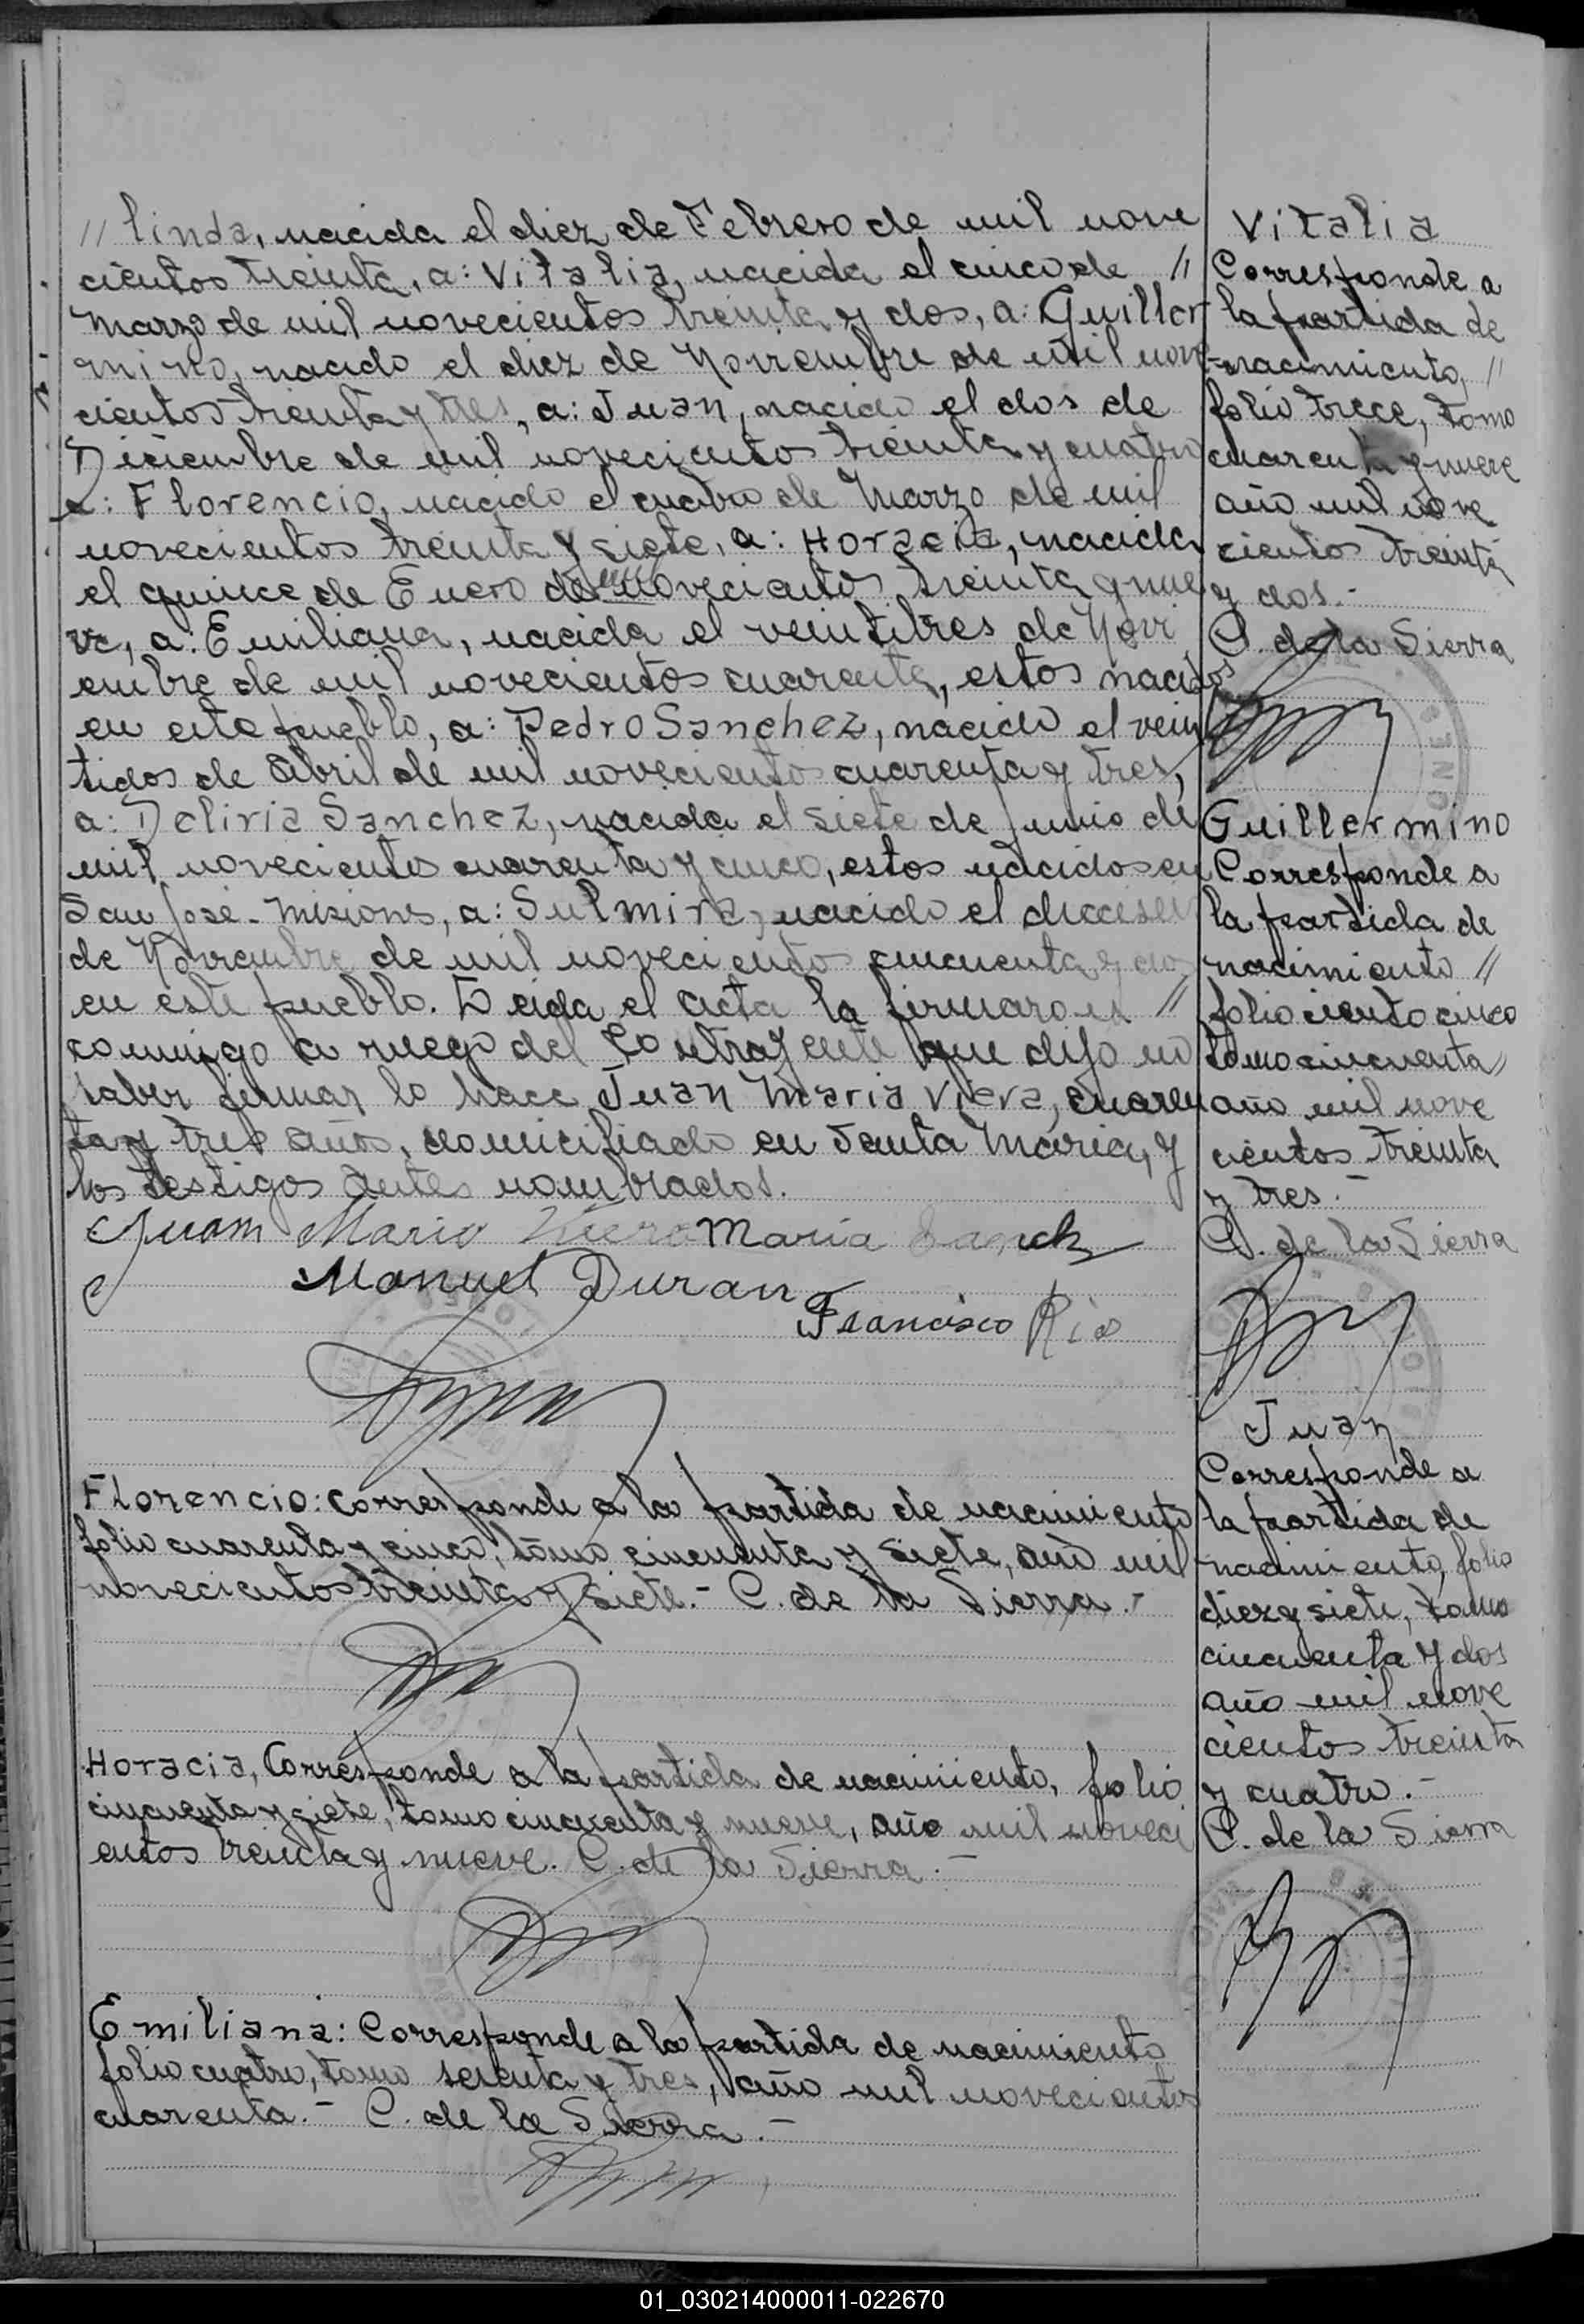 // linda, nacida el diez de Febrero de mil nove
cientos treinta, a: Vitalia, nacida el cinco de //
Marzo de mil novecientos treinta y dos, a: Guiller
mino, nacido el diez de Noviembre de mil nove
cientos treinta y tres, a: Juan, nacido el dos de
Diciembre de mil novecientos treinta y cuatro
a: Florencio, nacido el cuatro de Marzo de mil
novecientos treinta y siete, a: Horacia, nacida
el quince de Enero de mil novecientos treinta y nue
ve, a: Emiliana, nacida el veintitres de Novi
embre de mil novecientos cuarenta, estos nacidos
en este pueblo, a: Pedro Sanchez, nacido el vein
tidos de Abril de mil novecientos cuarenta y tres,
a: Deliria Sanchez, nacida el siete de Junio de
mil novecientos cuarenta y cinco, estos nacidos en
San José-Misiones, a: Sulmira, nacido el dieciseis
de Noviembre de mil novecientos cincuenta y dos
en este pueblo. Leida el acta la firmaron //
conmigo a ruego del Contrayente que dijo no
saber firmar lo hace Juan Maria Viera, cuaren
ta y tres años, domiciliado en Santa Maria, y
los testigos antes nombrados.
Juan Mario Viera Maria Sanchz
Manuel Duran
Francisco Rios
Florencio: corresponde a la partida de nacimiento
folio cuarenta y cinco, tomo cincuenta y siete, año mil
novecientos treinta y siete.- C. de la Sierra.-
Horacia, Corresponde a la partida de nacimiento, folio
cincuenta y siete, tomo cincuenta y nueve, año mil noveci
entos treinta y nueve. C. de la Sierra.-
Emiliana: Corresponde a la partida de nacimiento
folio cuatro, tomo sesenta y tres, año mil novecientos
cuarenta.- C. de la Sierra.-
Vitalia
Corresponde a
la partida de
nacimiento, //
folio trece, tomo
cuarenta y nueve
año mil nove
cientos treinta
y dos.-
C. de la Sierra
Guillermino
Corresponde a
la partida de
nacimiento //
folio ciento cinco
tomo cincuenta //
año mil nove
cientos treinta
y tres.-
C. de la Sierra
Juan
Corresponde a
la partida de
nacimiento, folio
diez y siete, tomo
cincuenta y dos
año mil nove
cientos treinta
y cuatro.-
C. de la Sierra
01_030214000011-022670